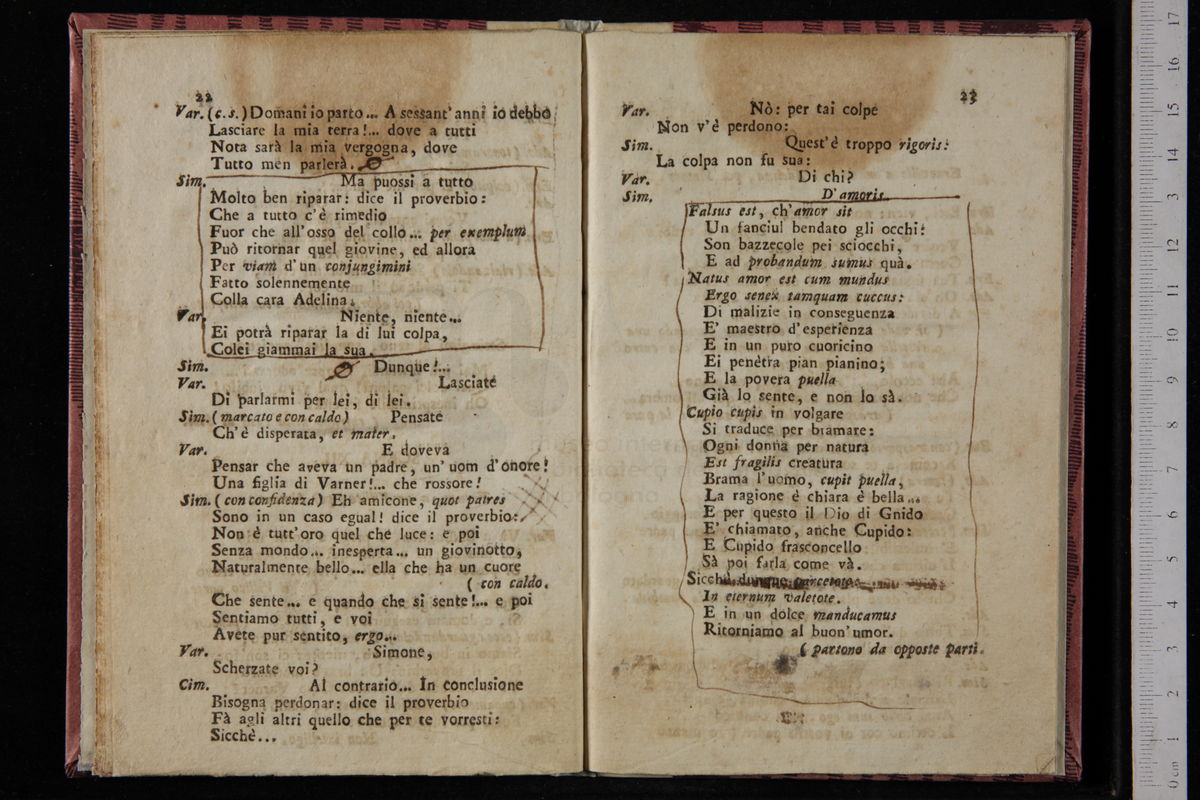 22
Var. (c.s.) Domani io parto... A sessant' anni io debbo
Lasciare la mia terra!... dove a tutti
Nota sarà la mia vergogna, dove
Tutto men parlerà.
Sim. Ma puossi a tutto
Molto ben riparar: dice il proverbio:
Che a tutto c'è rimedio
Fuor che all'osso del collo... per exemplum
Può ritornar quel giovine, ed allora
Per viam d'un conjungimini
Fatto solennemente
Colla cara Adelina.
Var. Niente, niente...
Ei potrà riparar la di lui colpa,
Colei giammai la sua.
Sim. Dunque!...
Var. Lasciate
Di parlarmi per lei, di lei.
Sim. (marcato e con caldo) Pensate
Ch'è disperata, et mater.
Var. E doveva
Pensar che aveva un padre, un' uom d'onore!
Una figlia di Varner!... che rossore!
Sim. (con confidenza) Eh amicone, quot patres
Sono in un caso egual! dice il proverbio:
Non è tutt'oro quel che luce: e poi
Senza mondo... inesperta... un giovinotto,
Naturalmente bello... ella che ha un cuore
( con caldo.
Che sente... e quando che si sente!... e poi
Sentiamo tutti, e voi
Avete pur sentito, ergo...
Var. Simone,
Scherzate voi?
Cim. Al contrario... In conclusione
Bisogna perdonar: dice il proverbio
Fà agli altri quello che per te vorresti:
Sicchè...
23
Var. Nò: per tai colpe
Non v'è perdono:
Sim. Quest'è troppo rigoris:
La colpa non fu sua:
Var. Di chi?
Sim. D'amoris.
Falsus est, ch'amor sit
Un fanciul bendato gli occhi:
Son bazzecole pei sciocchi,
E ad probandum sumus quà.
Natus amor est cum mundus
Ergo senex tamquam cuccus:
Di malizie in conseguenza
E' maestro d'esperienza
E in un puro cuoricino
Ei penètra pian pianino;
E la povera puella
Già lo sente, e non lo sà.
Cupio cupis in volgare
Si traduce per bramare:
Ogni donna per natura
Est fragilis creatura
Brama l'uomo, cupit puella,
La ragione è chiara è bella...
E per questo il Dio di Gnido
E' chiamato, anche Cupido:
E Cupido frasconcello
Sà poi farla come và.
Sicchè dunque
In eternum valetote.
E in un dolce manducamus
Ritorniamo al buon'umor.
( partono da opposte parti.